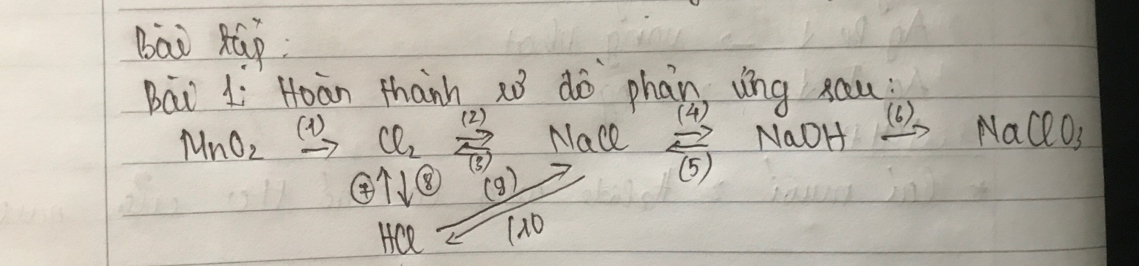 Bài tập:
Bài 1: Hoàn thành sơ đồ phản ứng sau:
MnO₂ (1)→ Cl₂ (2)⇌(3) NaCl (4)⇌(5) NaOH (6)→ NaClO₃
⑦↑↓⑧ (9)
HCl (10